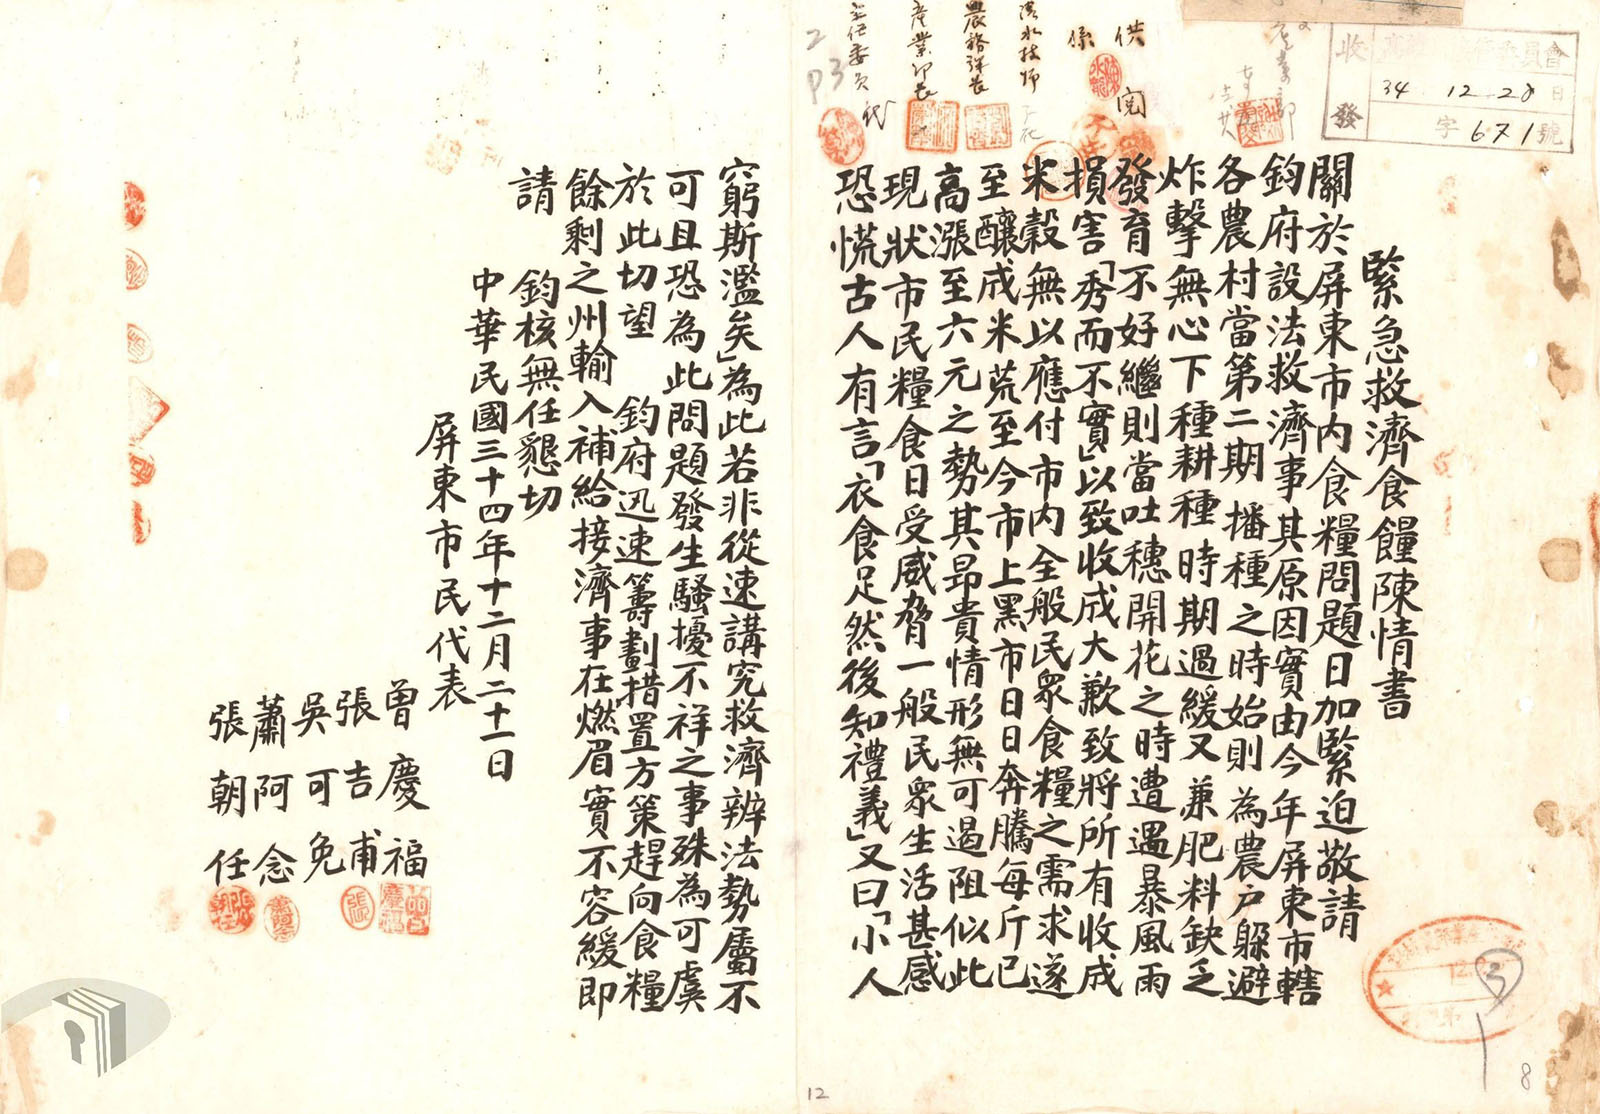 緊急救濟食饉陳情書
關於屏東市內食糧問題日加緊迫敬請
鈞府設法救濟事其原因實由今年屏東市轄
各農村當第二期播種之時始則為農户躲避
炸擊無心下種耕種時期過緩又兼肥料缺乏
發育不好繼則當吐穗開花之時遭遇暴風雨
損害「秀而不實」以致收成大歉致將所有收成
米穀無以應付市內全般民眾食糧之需求遂
至釀成米荒至今市上黑市日日奔騰每斤已
高漲至六元之勢其昂貴情形無可遏阻似此
現狀市民糧食日受威脅一般民眾生活甚感
恐慌古人有言「衣食足然後知禮義」又曰「小人
窮斯濫矣」為此若非從速講究救濟辦法勢屬不
可且恐為此問題發生騷擾不祥之事殊為可虞
於此切望 鈞府迅速籌劃措置方策趕向食糧
餘剩之州輸入補給接濟事在燃眉實不容緩即
請
鈞核無任懇切
中華民國三十四年十二月二十一日
屏東市民代表
曾慶福
張吉甫
吳可免
蕭阿念
張朝任
供閱
係
農務課長
主任委員代
收發
委員會
34 12 28日
字671號
2
P3
3
8
12